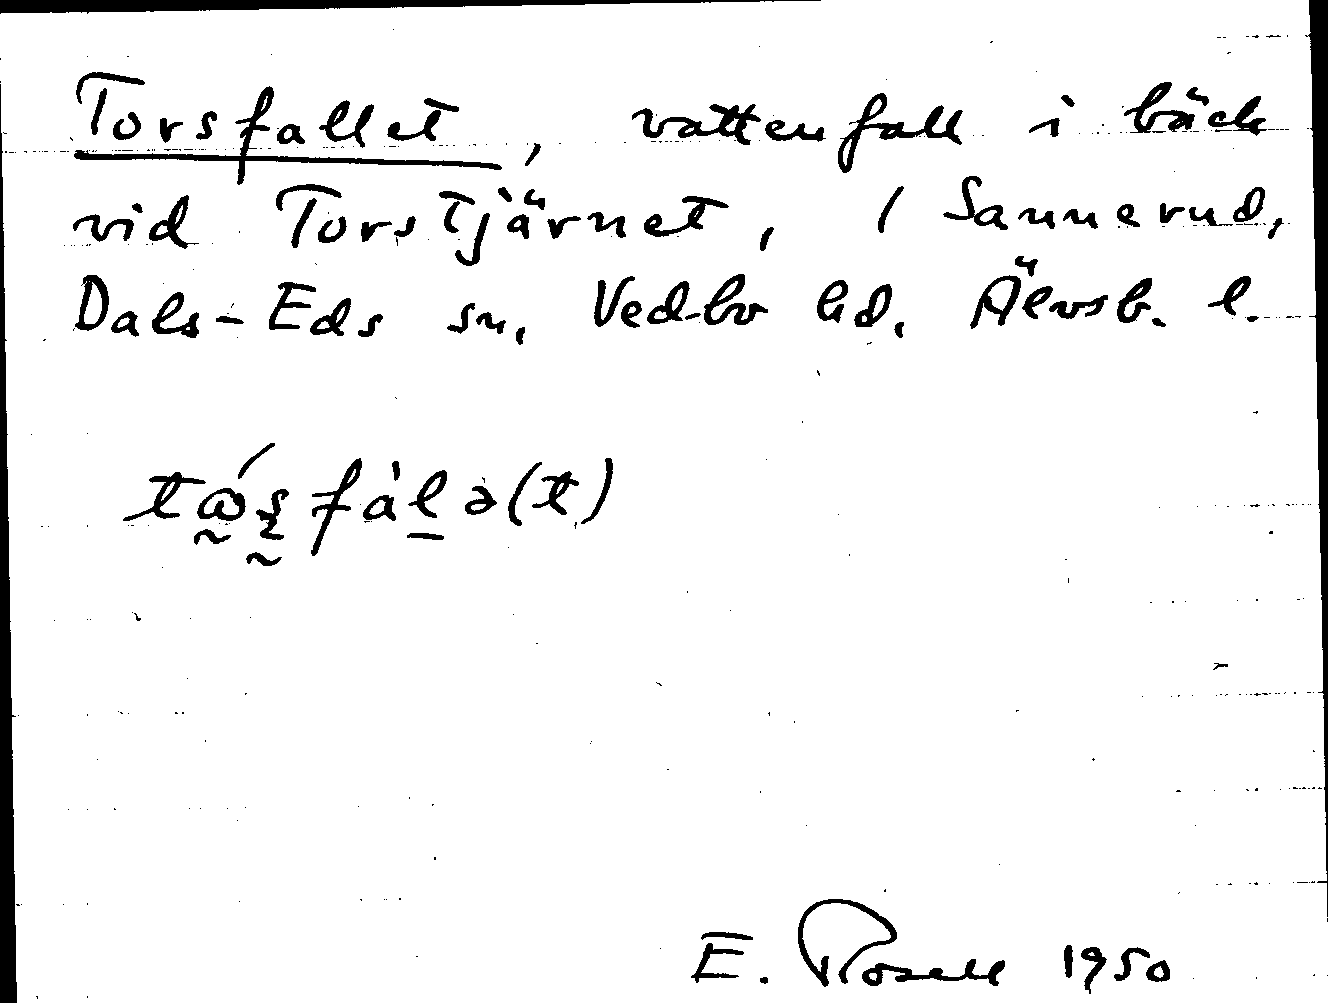 Torsfallet, vattenfall i bäck
vid Torstjärnet, / Sannerud,
Dals-Eds sn, Vedbo hd, Älvsb. l.
tώ̰ʂ̰fàl̲ə(t)
E. Rosell 1950